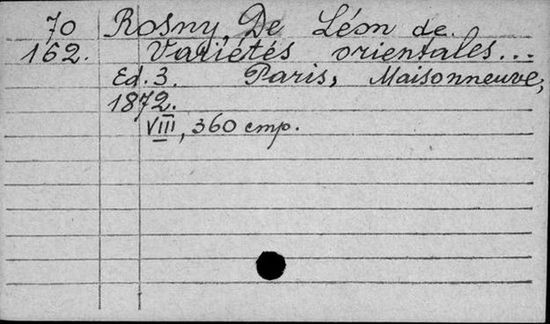 70 Rosny, De Léon de.
162. Variétés orientales...
Ed. 3. Paris, Maisonneuve,
1872.
VIII, 360 cmp.